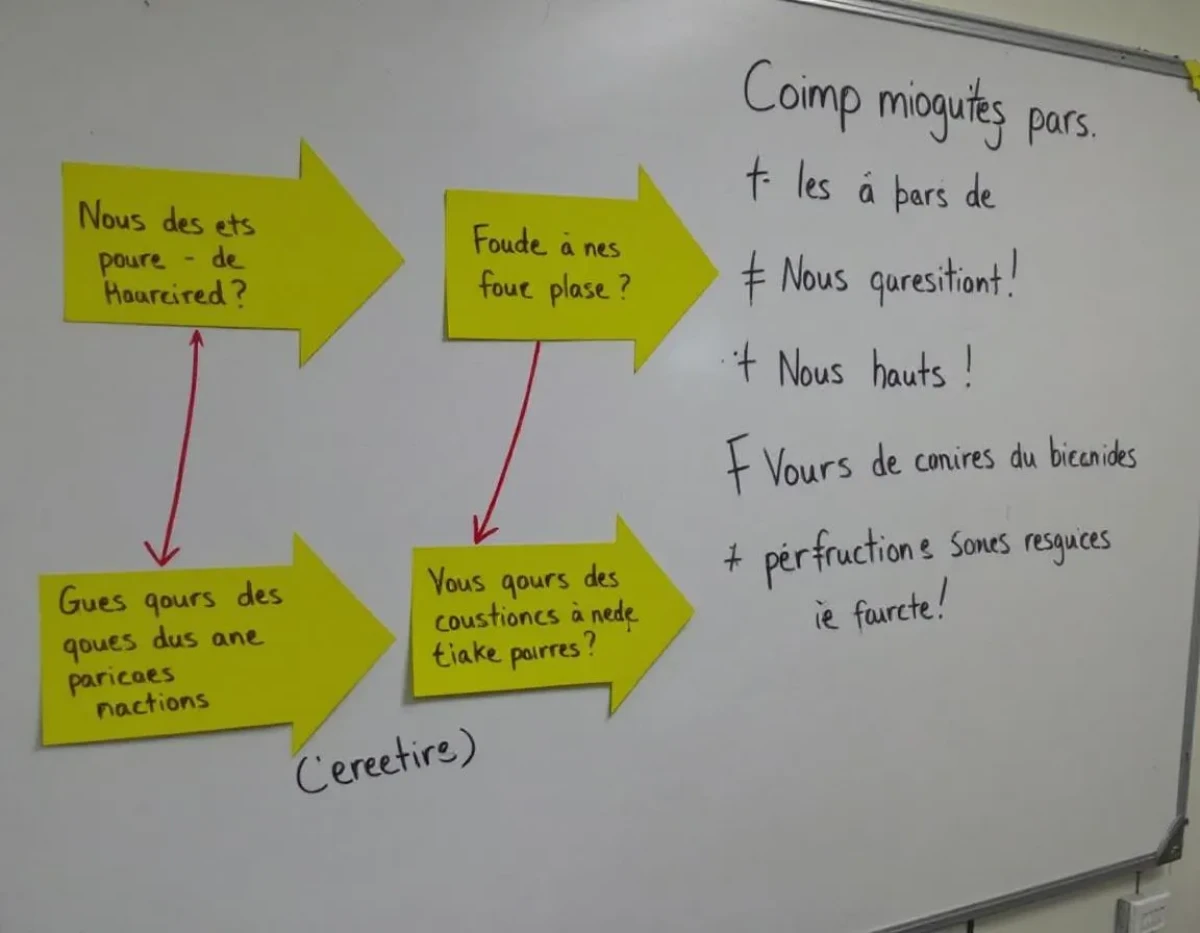 Nous des ets
poure - de
Hourcired?
Foude à nes
fouc plase?
Gues gours des
goues dus ane
paricaes
nactions
Vous gours des
coustioncs à nede
tiake pairres?
(ereetire)
Coimp mioguites pars.
+ les á pars de
‡ Nous qaresitiont!
+ Nous hauts!
F Vours de conires du biccnides
+ pérfructione sones resguces
ie faurcte!